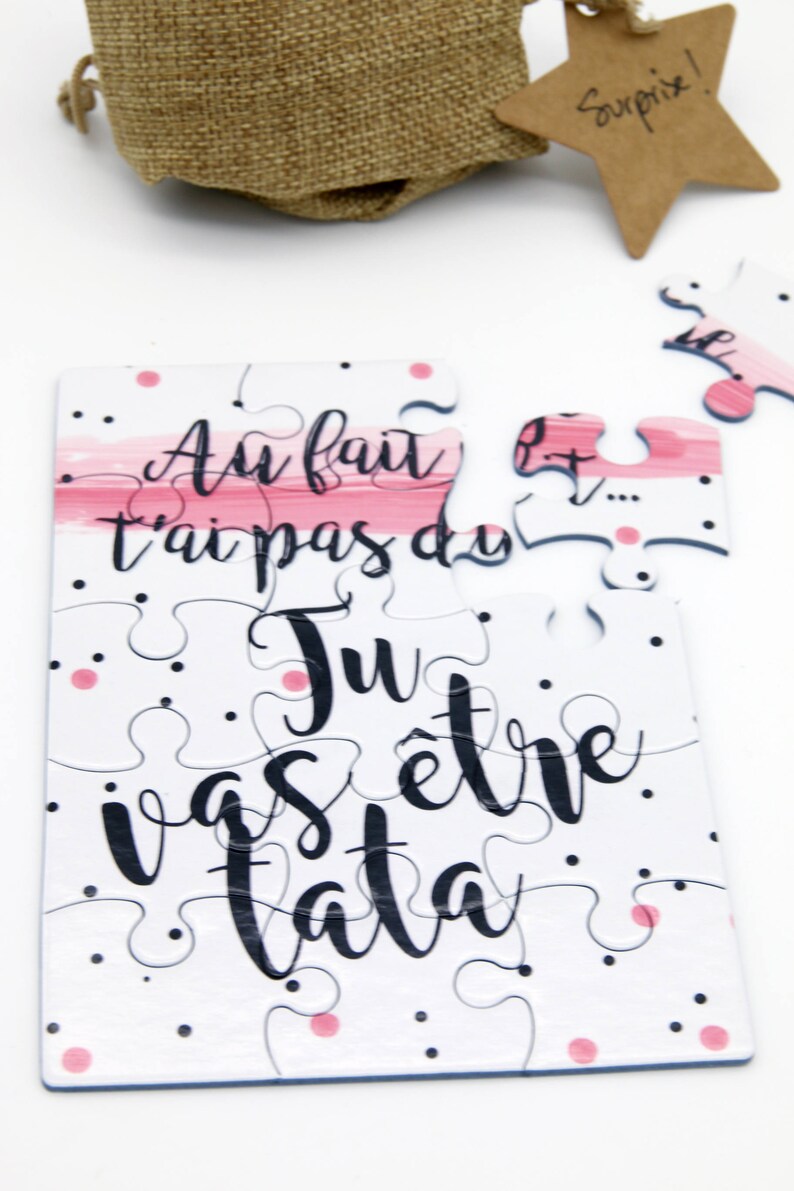 Surprise!
Au fait
t'ai pas du
t...
Tu
vas être
tata